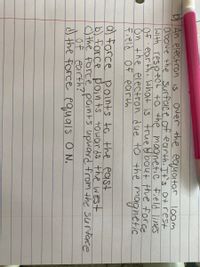 b) An electron is over the equator 100m
above surface of earth. It's at rest
with respect to the magnetic field lines
of earth. What is true about the force
on the electron due to the magnetic
field of earth
a) force points to the east
b) force points towards the west
c) the force points upward from the surface
of earth?
d) the force equals 0 N.